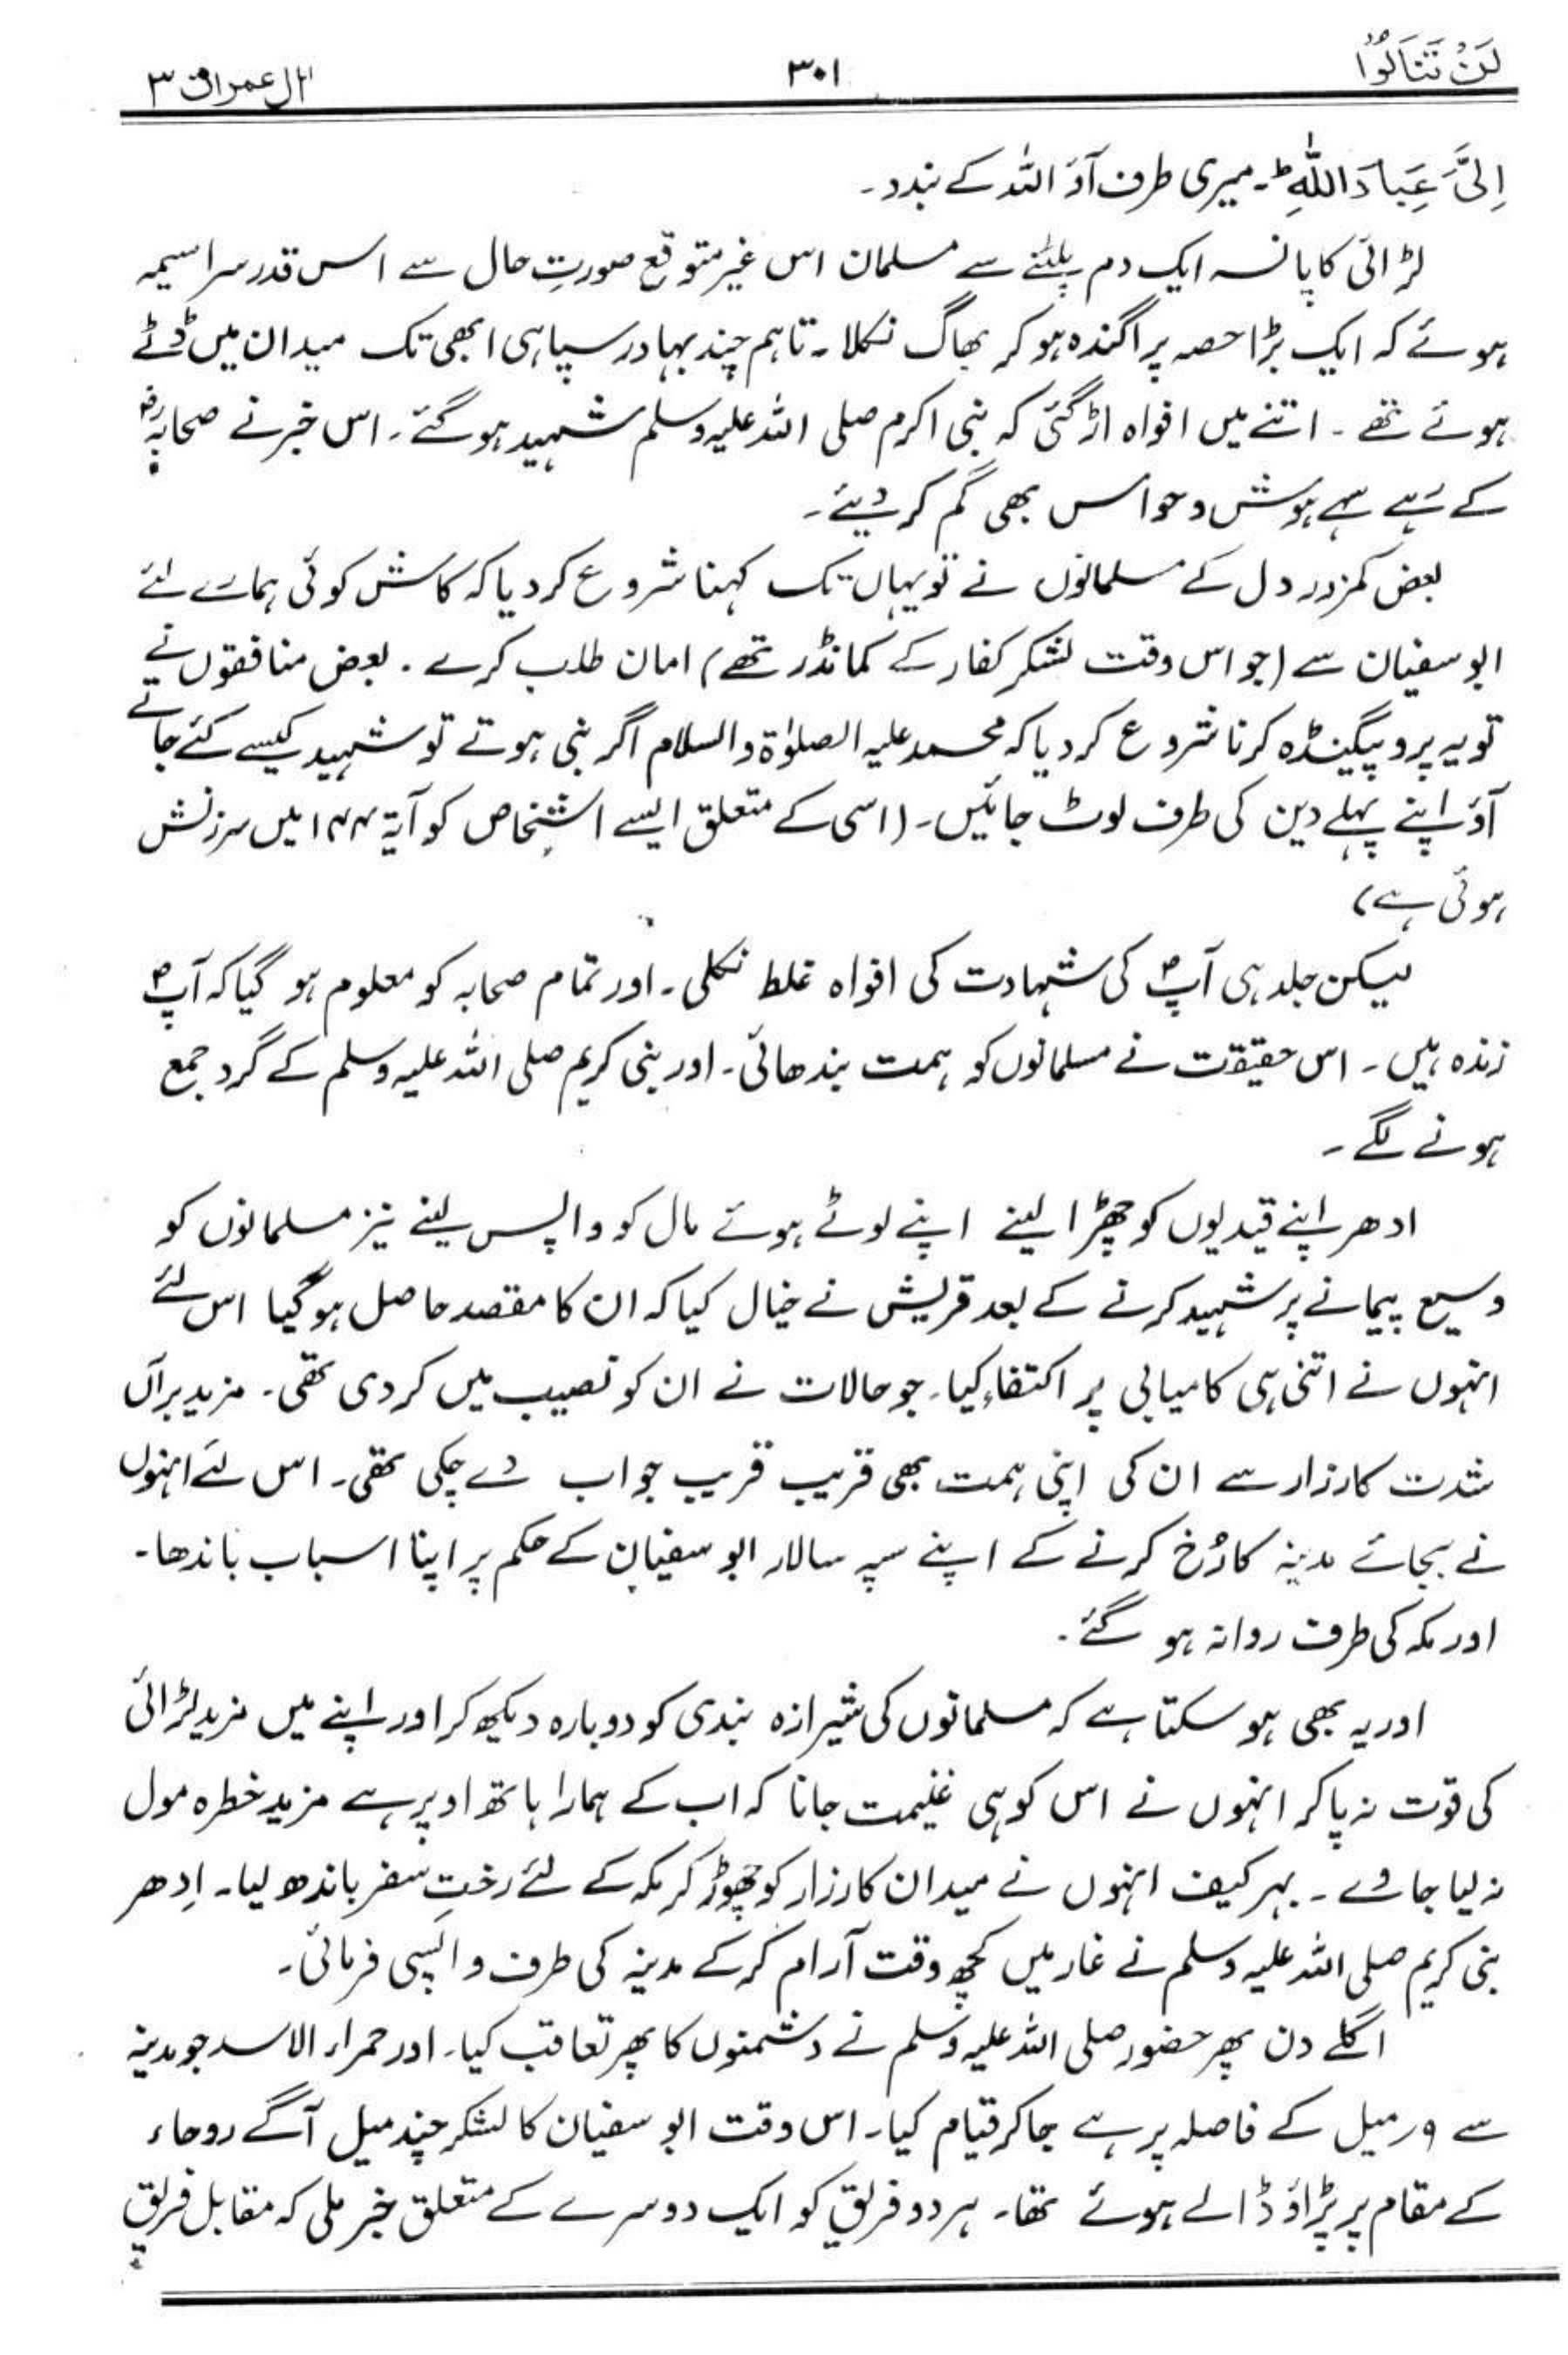 لَنْ تَنَالُوْا
۳۰۱
اٰل عمران ۳
اِلَیَّ عِبَادَ اللّٰهِ ؕ۔ میری طرف آؤ اللہ کے بندو۔
لڑائی کا پانسہ ایک دم پلٹنے سے مسلمان اس غیر متوقع صورتِ حال سے اس قدر سراسیمہ
ہوئے کہ ایک بڑا حصہ پراگندہ ہو کر بھاگ نکلا۔ تاہم چند بہادر سپاہی ابھی تک میدان میں ڈٹے
ہوئے تھے۔ اتنے میں افواہ اڑ گئی کہ نبی اکرم صلی اللہ علیہ وسلم شہید ہو گئے۔ اس خبر نے صحابہؓ
کے رہے سہے ہوش و حواس بھی گم کر دیئے۔
بعض کمزور دل کے مسلمانوں نے تو یہاں تک کہنا شروع کر دیا کہ کاش کوئی ہمارے لئے
ابو سفیان سے (جو اس وقت لشکر کفار کے کمانڈر تھے) امان طلب کرے۔ بعض منافقوں نے
تو یہ پروپیگنڈہ کرنا شروع کر دیا کہ محمد علیہ الصلوٰۃ والسلام اگر نبی ہوتے تو شہید کیسے کئے جاتے
آؤ اپنے پہلے دین کی طرف لوٹ جائیں۔ (اسی کے متعلق ایسے اشخاص کو آیۃ ۱۴۴ میں سرزنش
ہوئی ہے)
لیکن جلد ہی آپؐ کی شہادت کی افواہ غلط نکلی۔ اور تمام صحابہ کو معلوم ہو گیا کہ آپؐ
زندہ ہیں۔ اس حقیقت نے مسلمانوں کو ہمت بندھائی۔ اور نبی کریم صلی اللہ علیہ وسلم کے گرد جمع
ہونے لگے۔
ادھر اپنے قیدیوں کو چھڑا لینے اپنے لوٹے ہوئے مال کو واپس لینے نیز مسلمانوں کو
وسیع پیمانے پر شہید کرنے کے بعد قریش نے خیال کیا کہ ان کا مقصد حاصل ہو گیا اس لئے
انہوں نے اتنی ہی کامیابی پر اکتفاء کیا۔ جو حالات نے ان کو نصیب میں کر دی تھی۔ مزید برآں
شدت کارزار سے ان کی اپنی ہمت بھی قریب قریب جواب دے چکی تھی۔ اس لئے انہوں
نے بجائے مدینہ کا رُخ کرنے کے اپنے سپہ سالار ابو سفیان کے حکم پر اپنا اسباب باندھا۔
اور مکہ کی طرف روانہ ہو گئے۔
اور یہ بھی ہو سکتا ہے کہ مسلمانوں کی شیرازہ بندی کو دوبارہ دیکھ کر اور اپنے میں مزید لڑائی
کی قوت نہ پا کر انہوں نے اس کو ہی غنیمت جانا کہ اب کے ہمارا ہاتھ اوپر ہے مزید خطرہ مول
نہ لیا جاوے۔ بہر کیف انہوں نے میدان کارزار کو چھوڑ کر مکہ کے لئے رختِ سفر باندھ لیا۔ اِدھر
نبی کریم صلی اللہ علیہ وسلم نے غار میں کچھ وقت آرام کر کے مدینہ کی طرف واپسی فرمائی۔
اگلے دن پھر حضور صلی اللہ علیہ وسلم نے دشمنوں کا پھر تعاقب کیا۔ اور حمراء الاسد جو مدینہ
سے ۹ر میل کے فاصلہ پر ہے جا کر قیام کیا۔ اس وقت ابو سفیان کا لشکر چند میل آگے روحاء
کے مقام پر پڑاؤ ڈالے ہوئے تھا۔ ہر دو فریق کو ایک دوسرے کے متعلق خبر ملی کہ مقابل فریق